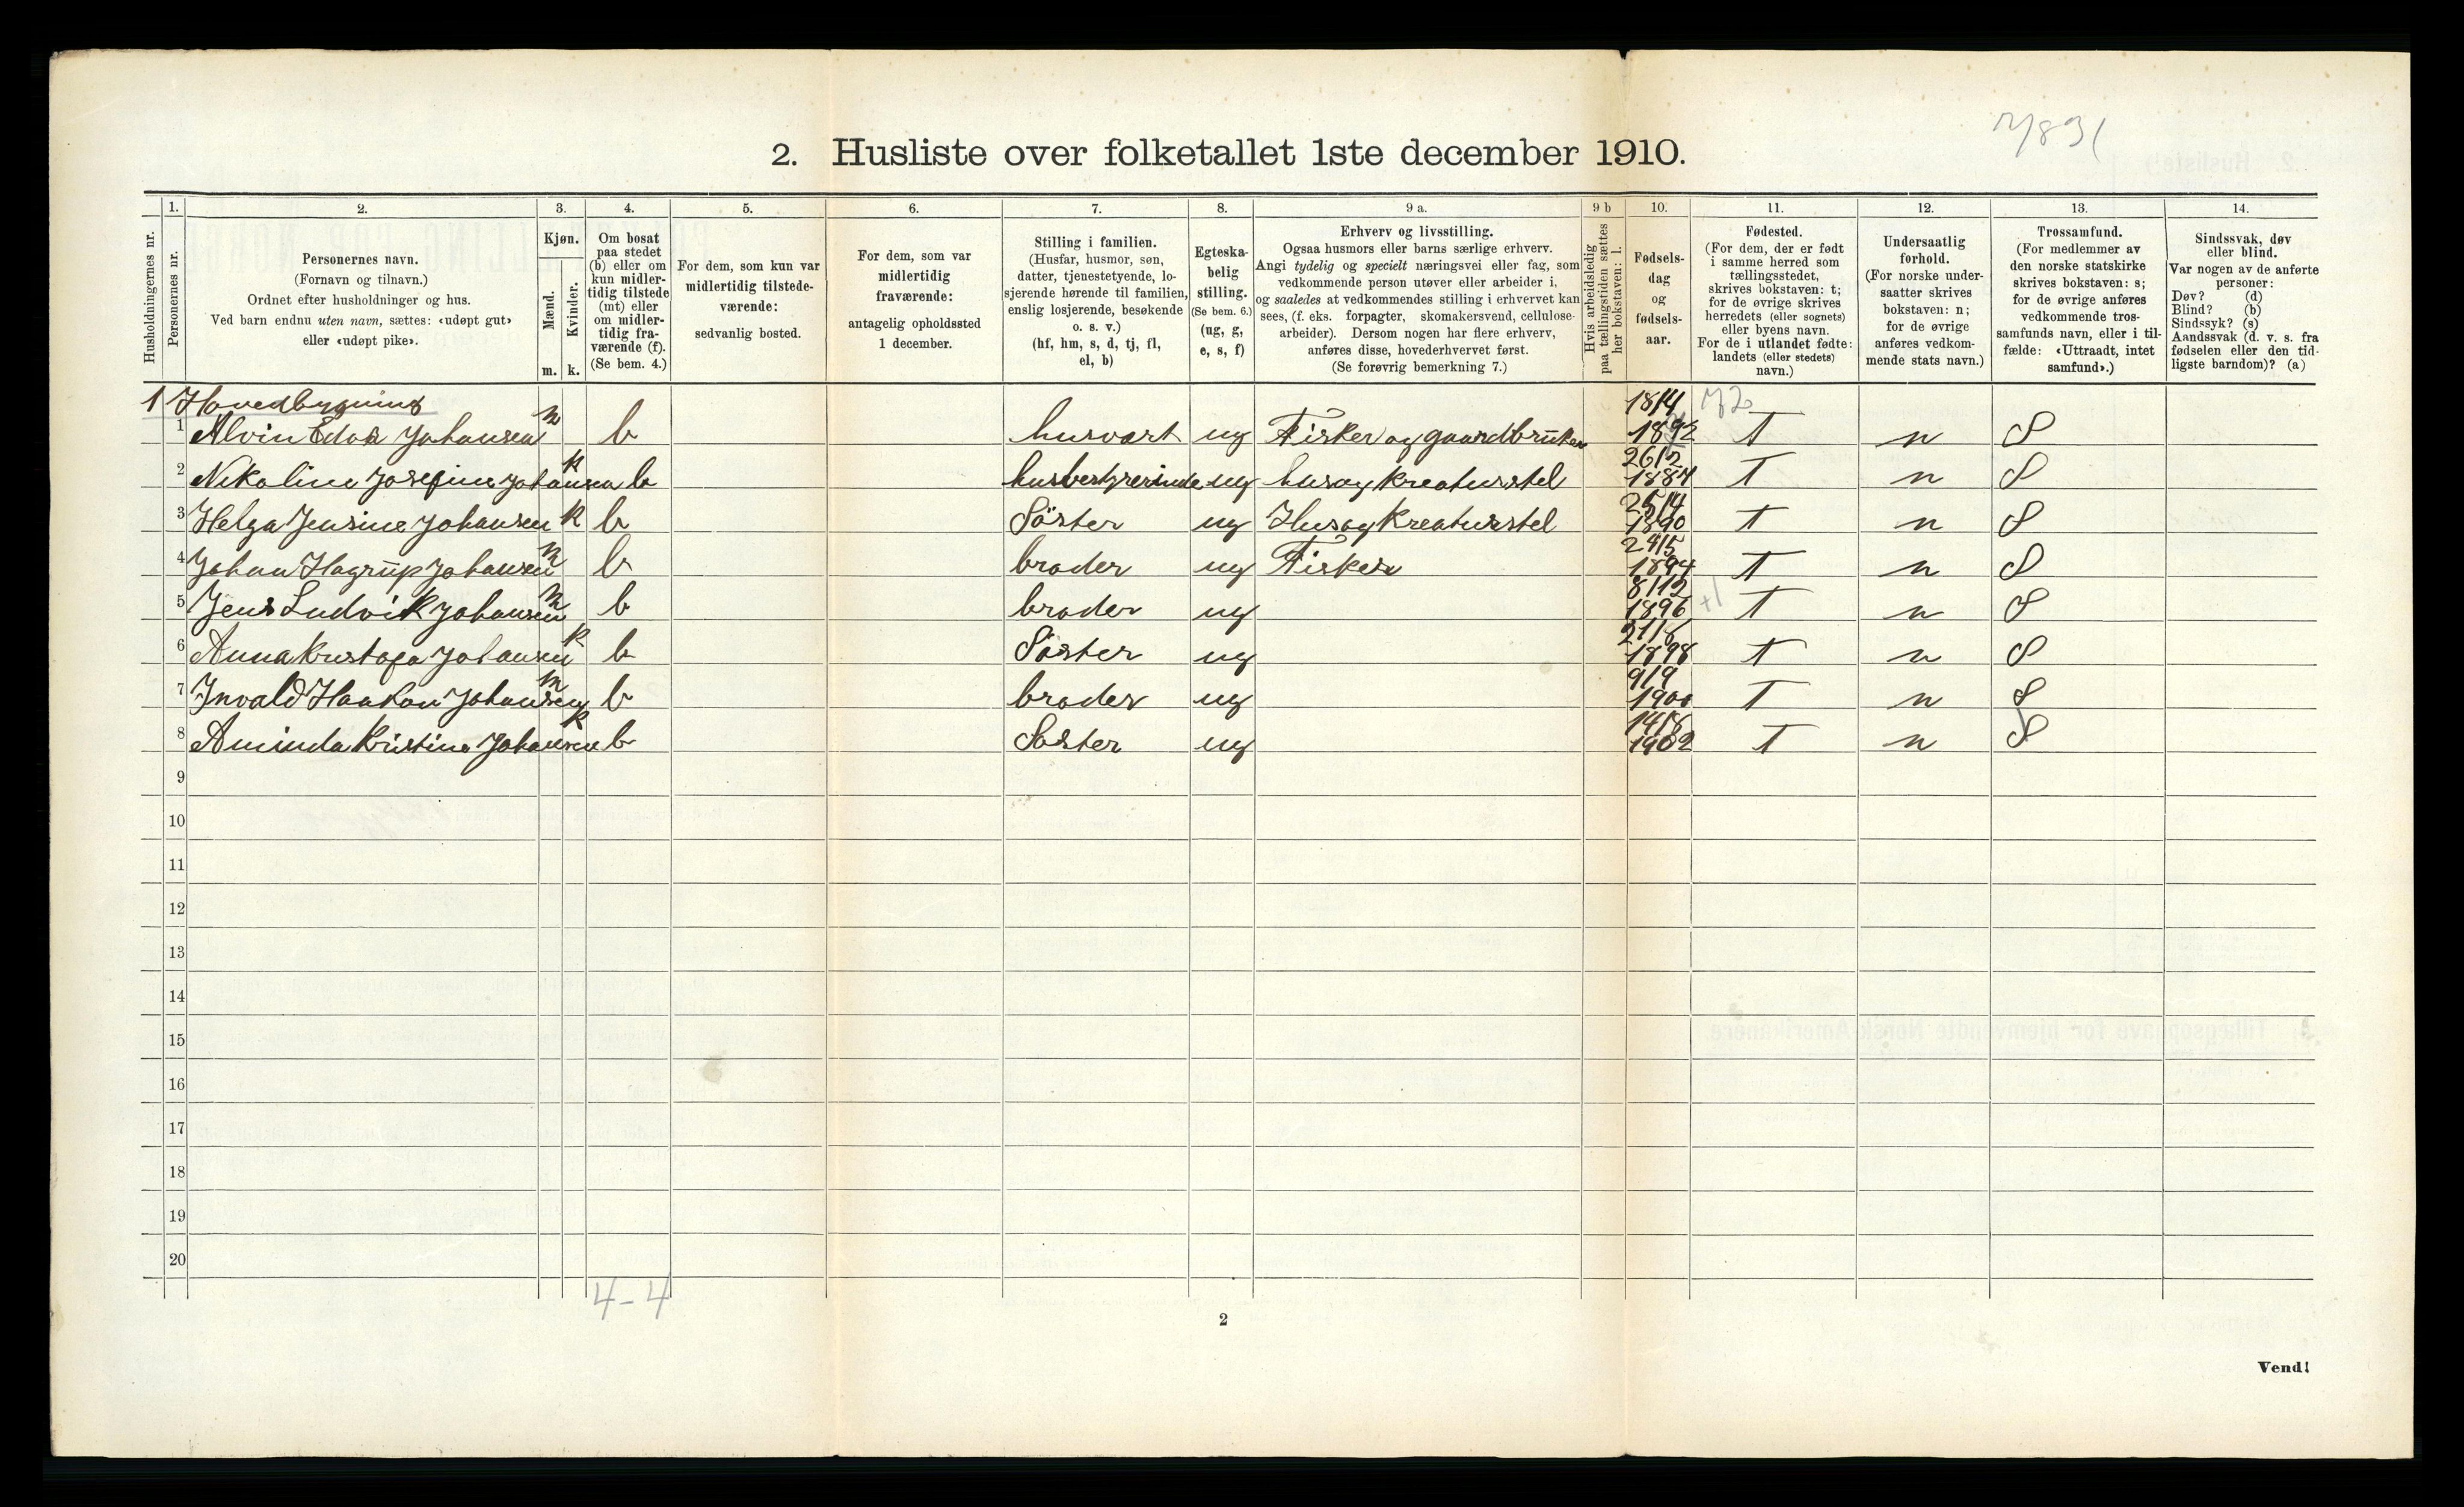 7831
2. Husliste over folketallet 1ste december 1910.
Husholdningernes nr.
1.
Personernes nr.
2.
Personernes navn.
(Fornavn og tilnavn.)
Ordnet efter husholdninger og hus.
Ved barn endnu uten navn, sættes: «udøpt gut»
eller «udøpt pike».
3.
Kjøn.
Mænd.
m.
Kvinder.
k.
4.
Om bosat
paa stedet
(b) eller om
kun midler-
tidig tilstede
(mt) eller
om midler-
tidig fra-
værende (f).
(Se bem. 4.)
5.
For dem, som kun var
midlertidig tilstede-
værende:
sedvanlig bosted.
6.
For dem, som var
midlertidig
fraværende:
antagelig opholdssted
1 december.
7.
Stilling i familien.
(Husfar, husmor, søn,
datter, tjenestetyende, lo-
sjerende hørende til familien,
enslig losjerende, besøkende
o. s. v.)
(hf, hm, s, d, tj, fl,
el, b)
8.
Egteska-
belig
stilling.
(Se bem. 6.)
(ug, g,
e, s, f)
9 a.
Erhverv og livsstilling.
Ogsaa husmors eller barns særlige erhverv.
Angi tydelig og specielt næringsvei eller fag, som
vedkommende person utøver eller arbeider i,
og saaledes at vedkommendes stilling i erhvervet kan
sees, (f. eks. forpagter, skomakersvend, cellulose-
arbeider). Dersom nogen har flere erhverv,
anføres disse, hovederhvervet først.
(Se forøvrig bemerkning 7.)
9 b
Hvis arbeidsledig
paa tællingstiden sættes
her bokstaven: l.
10.
Fødsels-
dag
og
fødsels-
aar.
11.
Fødested.
(For dem, der er født
i samme herred som
tællingsstedet,
skrives bokstaven: t;
for de øvrige skrives
herredets (eller sognets)
eller byens navn.
For de i utlandet fødte:
landets (eller stedets)
navn.)
12.
Undersaatlig
forhold.
(For norske under-
saatter skrives
bokstaven: n;
for de øvrige
anføres vedkom-
mende stats navn.)
13.
Trossamfund.
(For medlemmer av
den norske statskirke
skrives bokstaven: s;
for de øvrige anføres
vedkommende tros-
samfunds navn, eller i til-
fælde: «Uttraadt, intet
samfund».)
14.
Sindssvak, døv
eller blind.
Var nogen av de anførte
personer:
Døv? (d)
Blind? (b)
Sindssyk? (s)
Aandssvak (d. v. s. fra
fødselen eller den tid-
ligste barndom)? (a)
1 Hovedbygning 18/4
1 Alvin Johansen m b husvært ug Fisker og gaardbruker T n S
2 Nikoline Josefine Johansen k b husbestyrerinde ug hus og kreaturstel 26/2 T n S
3 Helga Jensine Johansen k b Söster ug Hus og kreaturstel 25/4 1890 T n S
4 Johan Hagrup Johansen m b broder ug Fisker 24/5 1894 T n S
5 Jens Ludvik Johansen m b broder ug 8/12 1896 T n S
6 Anna Johansen k b Söster ug 1898 T n S
7 Invald Haakon Johansen m b broder ug 9/9 1900 T n S
8 Aminda Kristine Johansen k b Söster ug 14/8 1902 T n S
9
10
11
12
13
14
15
16
17
18
19
20
4-4
2
Vend!